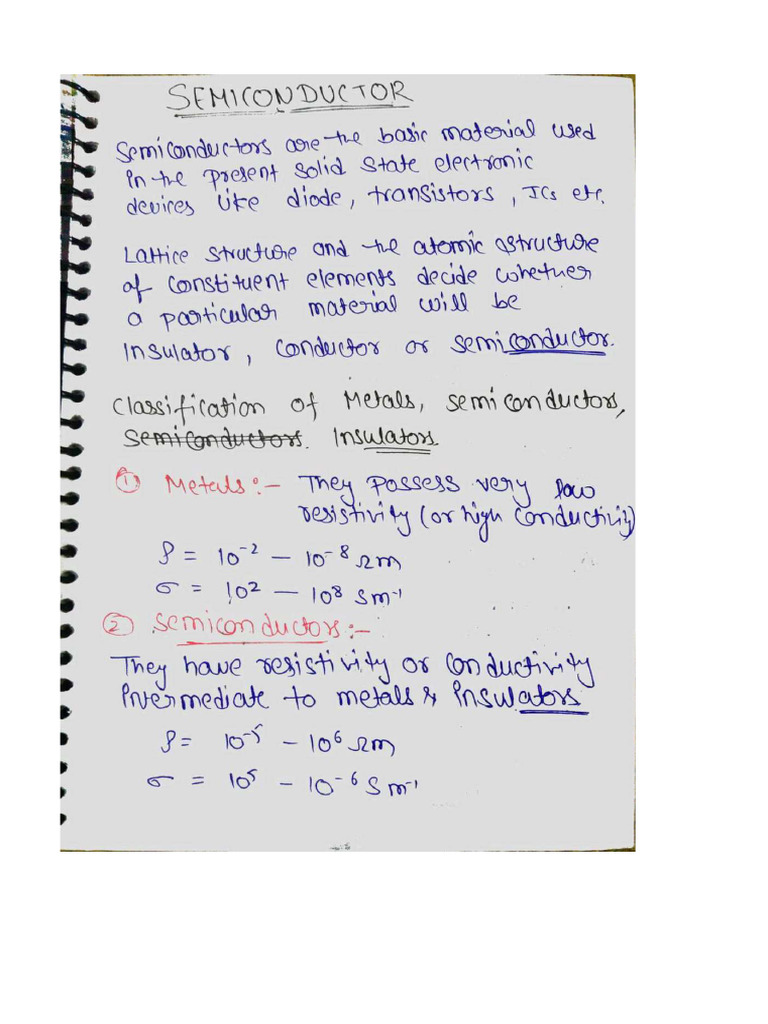 SEMICONDUCTOR
Semiconductors are the basic material used
in the present solid state electronic
devices like diode, transistors, ICs etc.
Lattice structure and the atomic structure
of constituent elements decide whether
a particular material will be
Insulator, conductor or semiconductor.
Classification of Metals, semiconductors,
Semiconductors. Insulators.
① Metals:- They possess very low
resistivity (or high conductivity)
ρ = 10⁻² — 10⁻⁸ Ωm
σ = 10² — 10⁸ Sm⁻¹
② Semiconductors:-
They have resistivity or conductivity
intermediate to metals & insulators
ρ = 10⁻⁵ — 10⁶ Ωm
σ = 10⁵ — 10⁻⁶ Sm⁻¹